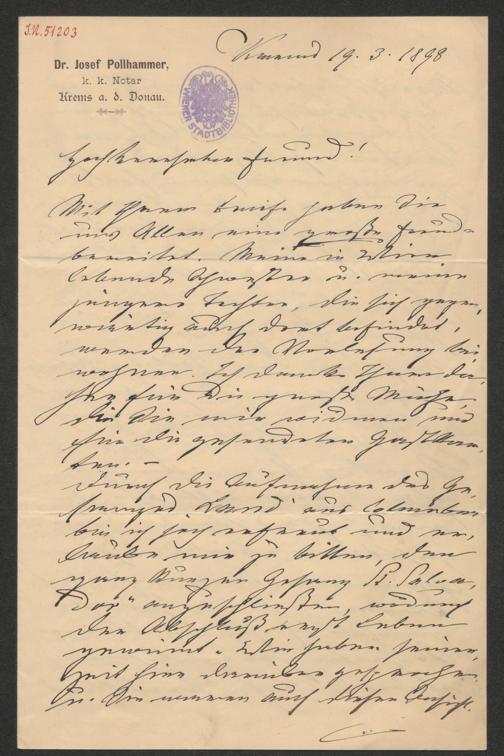 J.N. 51203
Dr. Josef Pollhammer,
k. k. Notar
Krems a. d. Donau.
WIENER STADTBIBLIOTHEK
Krems 19. 3. 1898
Hochverehrter Freund!
Mit Ihrem Briefe haben Sie
uns Allen eine große Freude
bereitet. Meine in Wien
lebende Schwester u. meine
jüngere Tochter, die sich gegen-
wärtig auch dort befindet,
werden der Vorlesung bei-
wohnen. Ich danke Ihnen da-
her für die große Mühe,
die Sie mir widmen und
für die gesendeten Gastkar-
ten. –
Durch die Aufnahme des Ge-
sanges "Land" aus Columbus
bin ich hoch erfreut und er-
laube mir zu bitten, den
ganz kurzen Gesang "St. Salva-
dor" anzuschließen, wodurch
der Abschluß erst Leben
gewinnt. Wir haben seiner-
zeit hier darüber gesprochen
u. Sie waren auch dieser Ansicht.